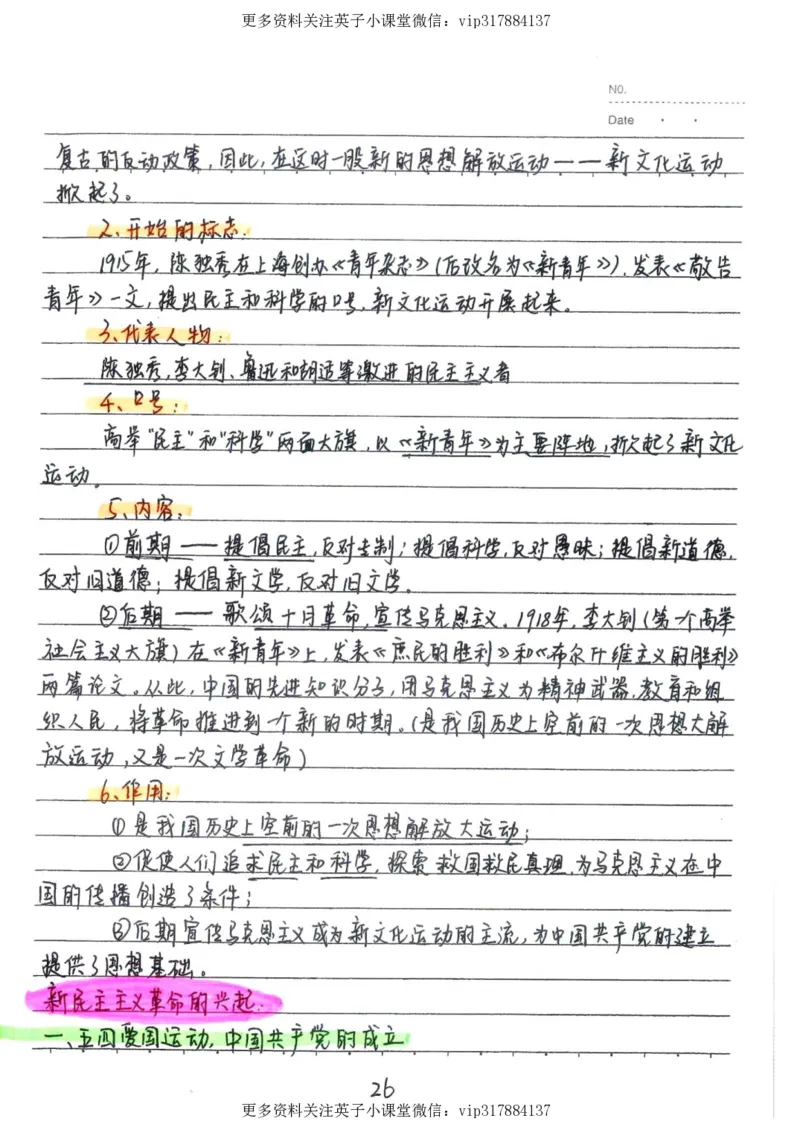 更多资料关注英子小课堂微信：vip317884137
NO.
Date
复古的反动政策，因此，在这时一股新的思想解放运动——新文化运动
掀起了。
2、开始的标志：
1915年，陈独秀在上海创办《青年杂志》（后改名为《新青年》），发表《敬告
青年》一文，提出民主和科学的口号，新文化运动开展起来。
3、代表人物：
陈独秀，李大钊、鲁迅和胡适等激进的民主主义者
4、口号：
高举"民主"和"科学"两面大旗，以《新青年》为主要阵地，掀起了新文化
运动。
5、内容：
①前期——提倡民主，反对专制；提倡科学，反对愚昧；提倡新道德，
反对旧道德；提倡新文学，反对旧文学。
②后期——歌颂十月革命，宣传马克思主义。1918年，李大钊（第一个高举
社会主义大旗）在《新青年》上，发表《庶民的胜利》和《布尔什维主义的胜利》
两篇论文。从此，中国的先进知识分子，用马克思主义为精神武器，教育和组
织人民，将革命推进到一个新的时期。（是我国历史上空前的一次思想大解
放运动，又是一次文学革命）
6、作用：
①是我国历史上空前的一次思想解放大运动；
②促使人们追求民主和科学，探索救国救民真理，为马克思主义在中
国的传播创造了条件；
③后期宣传马克思主义成为新文化运动的主流，为中国共产党的建立
提供了思想基础。
新民主主义革命的兴起：
一、五四爱国运动，中国共产党的成立
26
更多资料关注英子小课堂微信：vip317884137